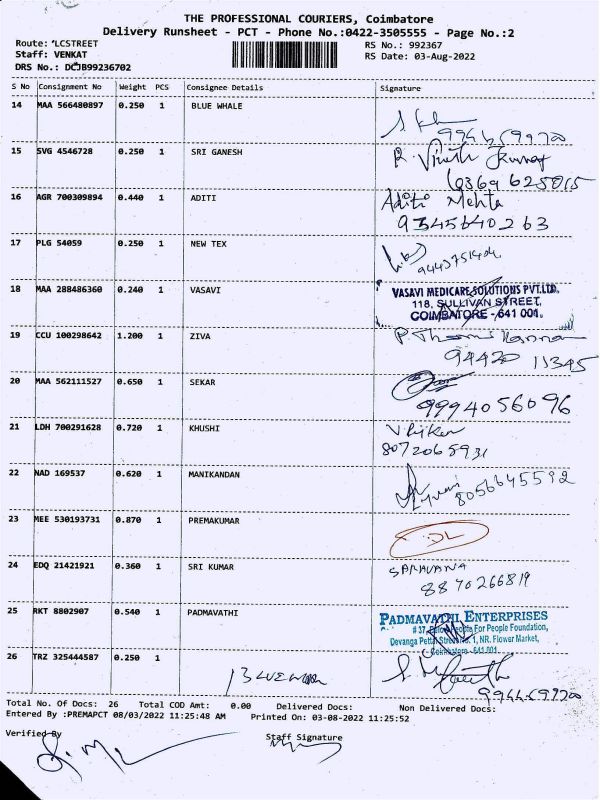 THE PROFESSIONAL COURIERS, Coimbatore
Delivery Runsheet - PCT - Phone No.:0422-3505555 - Page No.:2
Route: 'LCSTREET
RS No.: 992367
Staff: VENKAT
RS Date: 03-Aug-2022
DRS No.: DCJB99236702
S No Consignment No Weight PCS Consignee Details Signature
14 MAA 566480897 0.250 1 BLUE WHALE
15 SVG 4546728 0.250 1 SRI GANESH
R. Vinoth Kumar
16 AGR 700309894 0.440 1 ADITI Aditi Mehta
9345640263
17 PLG 54059 0.250 1 NEW TEX
9443751404
18 MAA 288486360 0.240 1 VASAVI VASAVI MEDICARE SOLUTIONS PVT.LTD.
118, SULLIVAN STREET,
COIMBATORE - 641 001.
19 CCU 100298642 1.200 1 ZIVA
94420 11345
20 MAA 562111527 0.650 1 SEKAR
9994056096
21 LDH 700291628 0.720 1 KHUSHI
8072065931
22 NAD 169537 0.620 1 MANIKANDAN
8056645592
23 MEE 530193731 0.870 1 PREMAKUMAR
DL
24 EDQ 21421921 0.360 1 SRI KUMAR SARAVANA
8870266819
25 RKT 8802907 0.540 1 PADMAVATHI PADMAVATHI ENTERPRISES
# 37, People For People Foundation,
Devanga Pettai Street No. 1, NR. Flower Market,
Coimbatore - 641 001.
26 TRZ 325444587 0.250 1
Total No. Of Docs: 26 Total COD Amt: 0.00 Delivered Docs: Non Delivered Docs:
Entered By :PREMAPCT 08/03/2022 11:25:48 AM Printed On: 03-08-2022 11:25:52
Verified By
Staff Signature